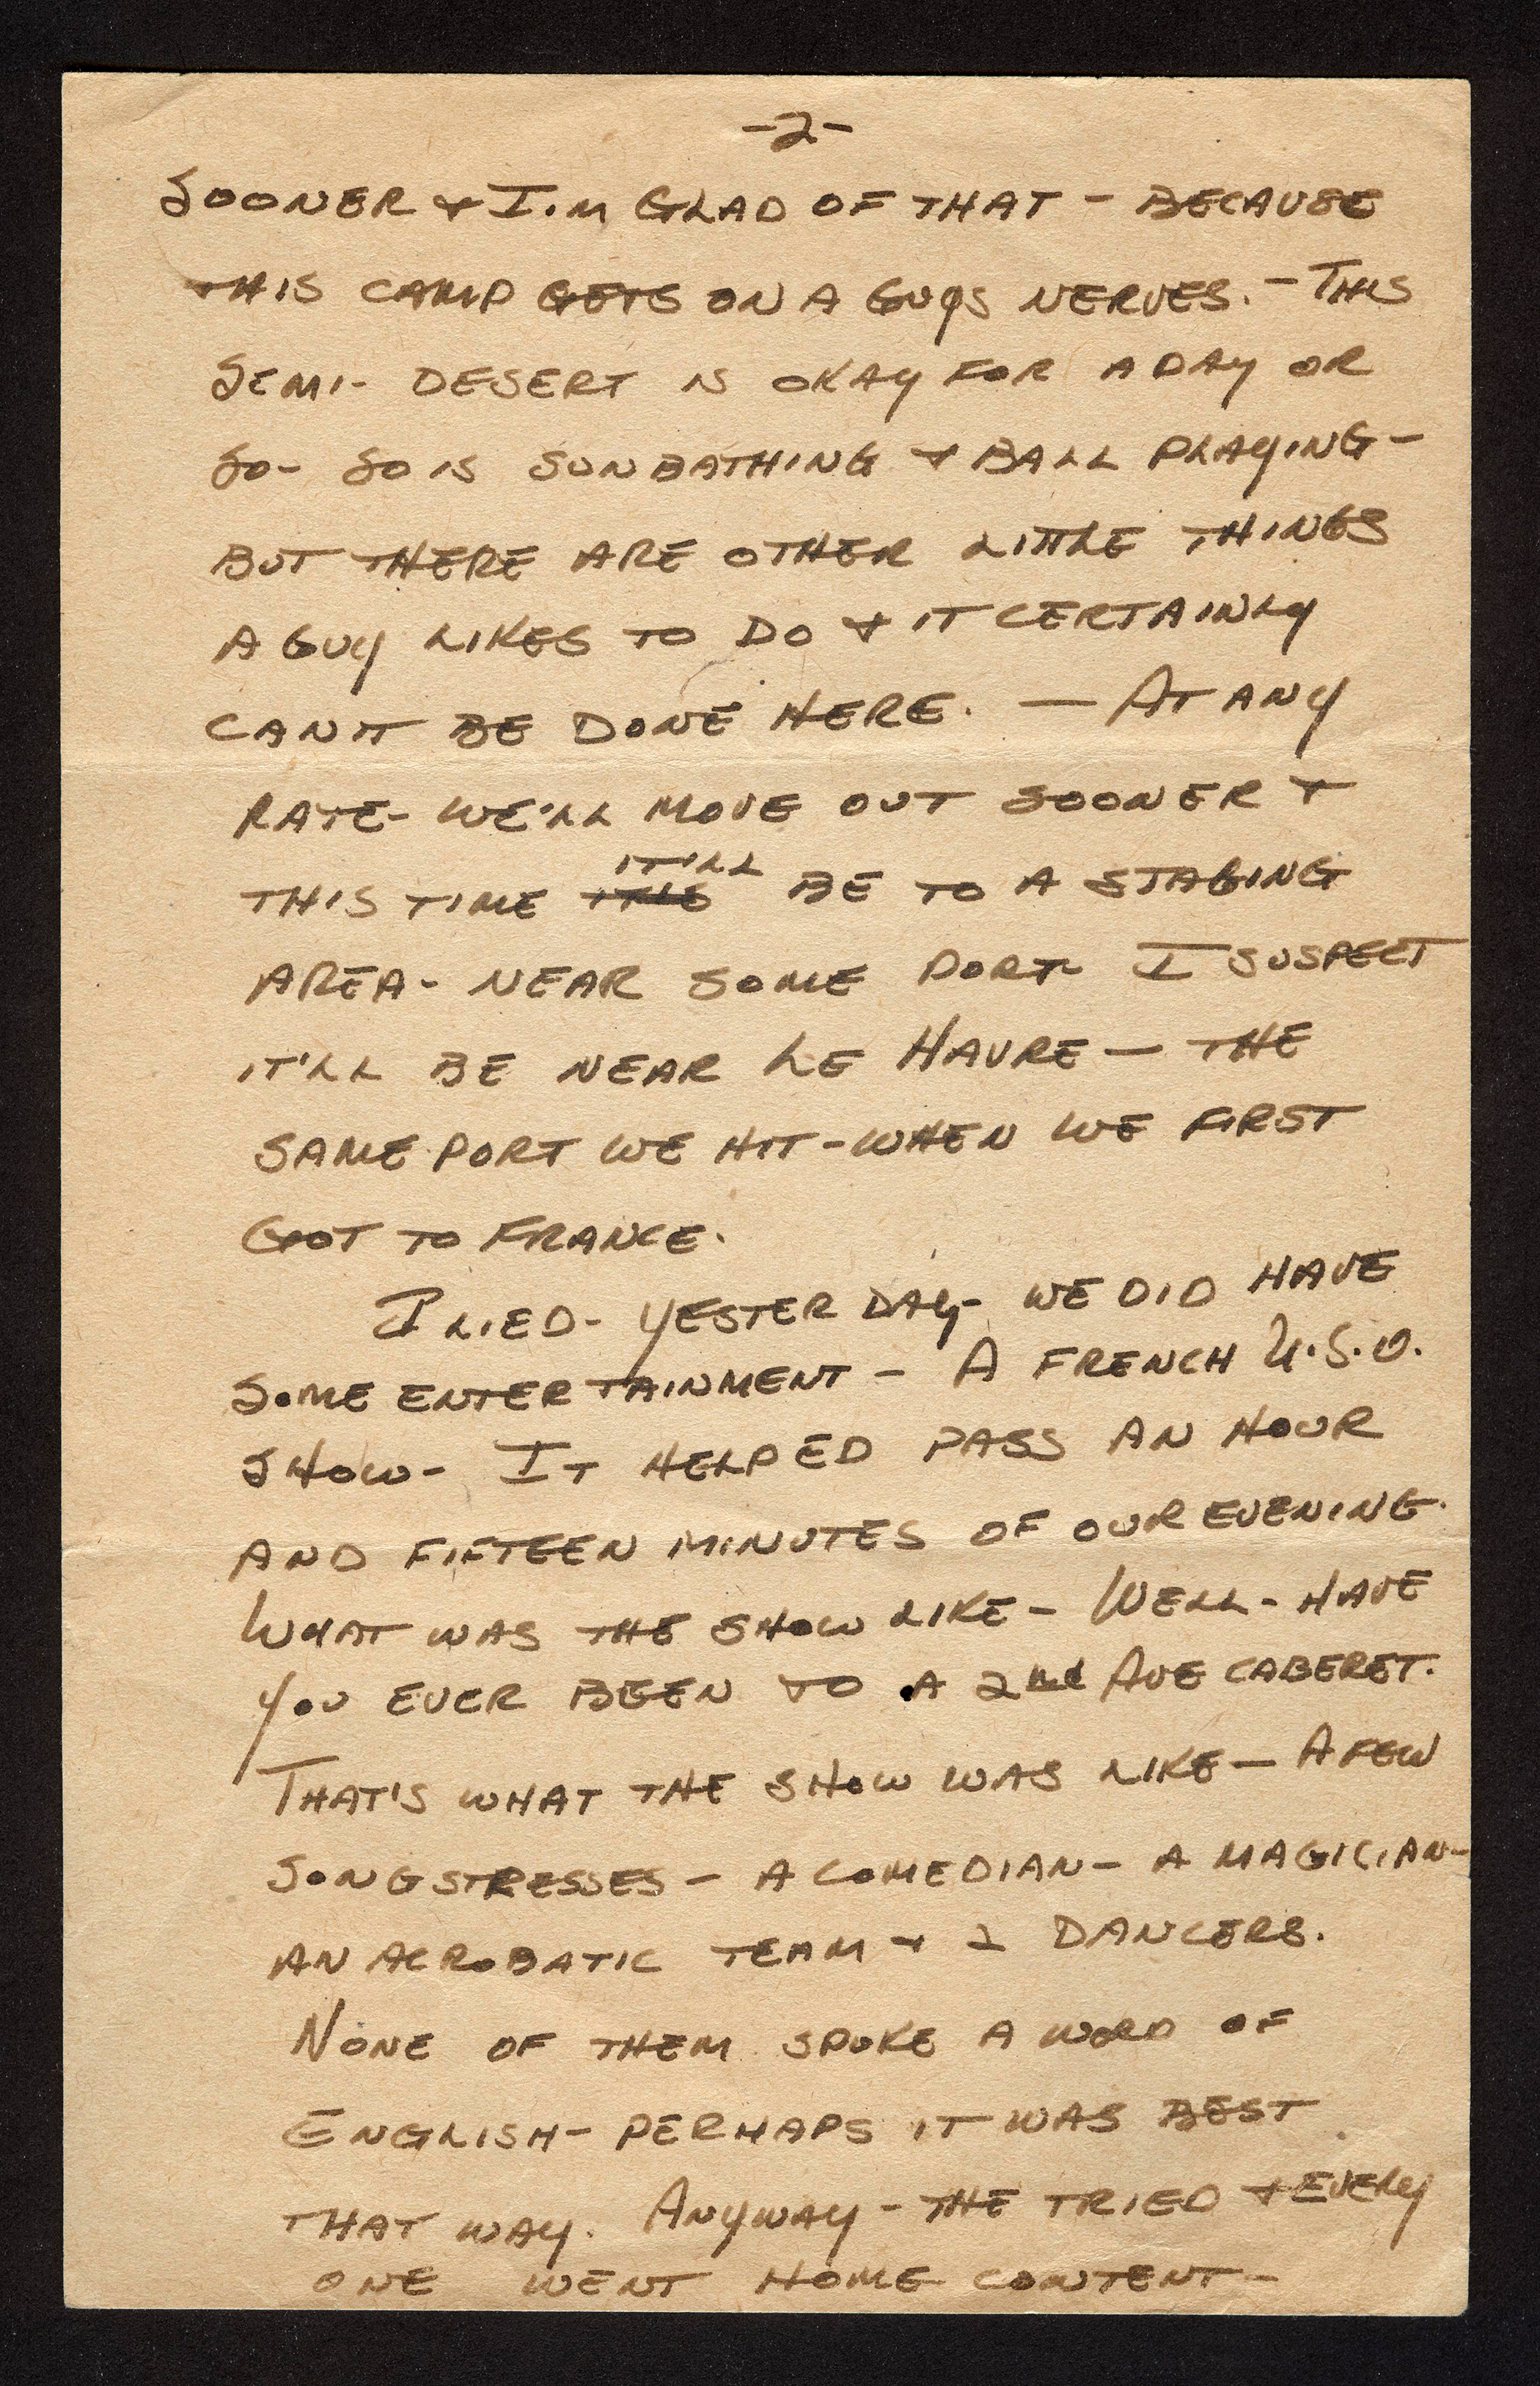 -2-
SOONER & I'M GLAD OF THAT - BECAUSE
THIS CAMP GETS ON A GUYS NERVES. - THIS
SEMI- DESERT IS OKAY FOR A DAY OR
SO- SO IS SUNBATHING & BALL PLAYING -
BUT THERE ARE OTHER LITTLE THINGS
A GUY LIKES TO DO & IT CERTAINLY
CAN'T BE DONE HERE. — AT ANY
RATE- WE'LL MOVE OUT SOONER &
IT'LL
THIS TIME ITIS BE TO A STAGING
AREA- NEAR SOME PORT- I SUSPECT
IT'LL BE NEAR LE HAVRE — THE
SAME PORT WE HIT - WHEN WE FIRST
GOT TO FRANCE.
I LIED- YESTERDAY- WE DID HAVE
SOME ENTERTAINMENT - A FRENCH U.S.O.
SHOW- IT HELPED PASS AN HOUR
AND FIFTEEN MINUTES OF OUR EVENING.
WHAT WAS THE SHOW LIKE - WELL - HAVE
YOU EVER BEEN TO A 2nd AVE CABERET.
THAT'S WHAT THE SHOW WAS LIKE — A FEW
SONGSTRESSES - A COMEDIAN - A MAGICIAN -
AN ACROBATIC TEAM & 2 DANCERS.
NONE OF THEM SPOKE A WORD OF
ENGLISH - PERHAPS IT WAS BEST
THAT WAY. ANYWAY - THE TRIED & EVERY
ONE WENT HOME CONTENT -